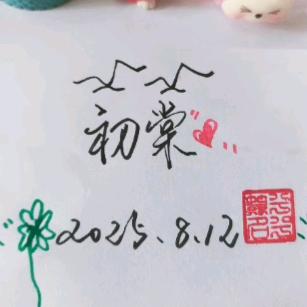 初棠
2025.8.12